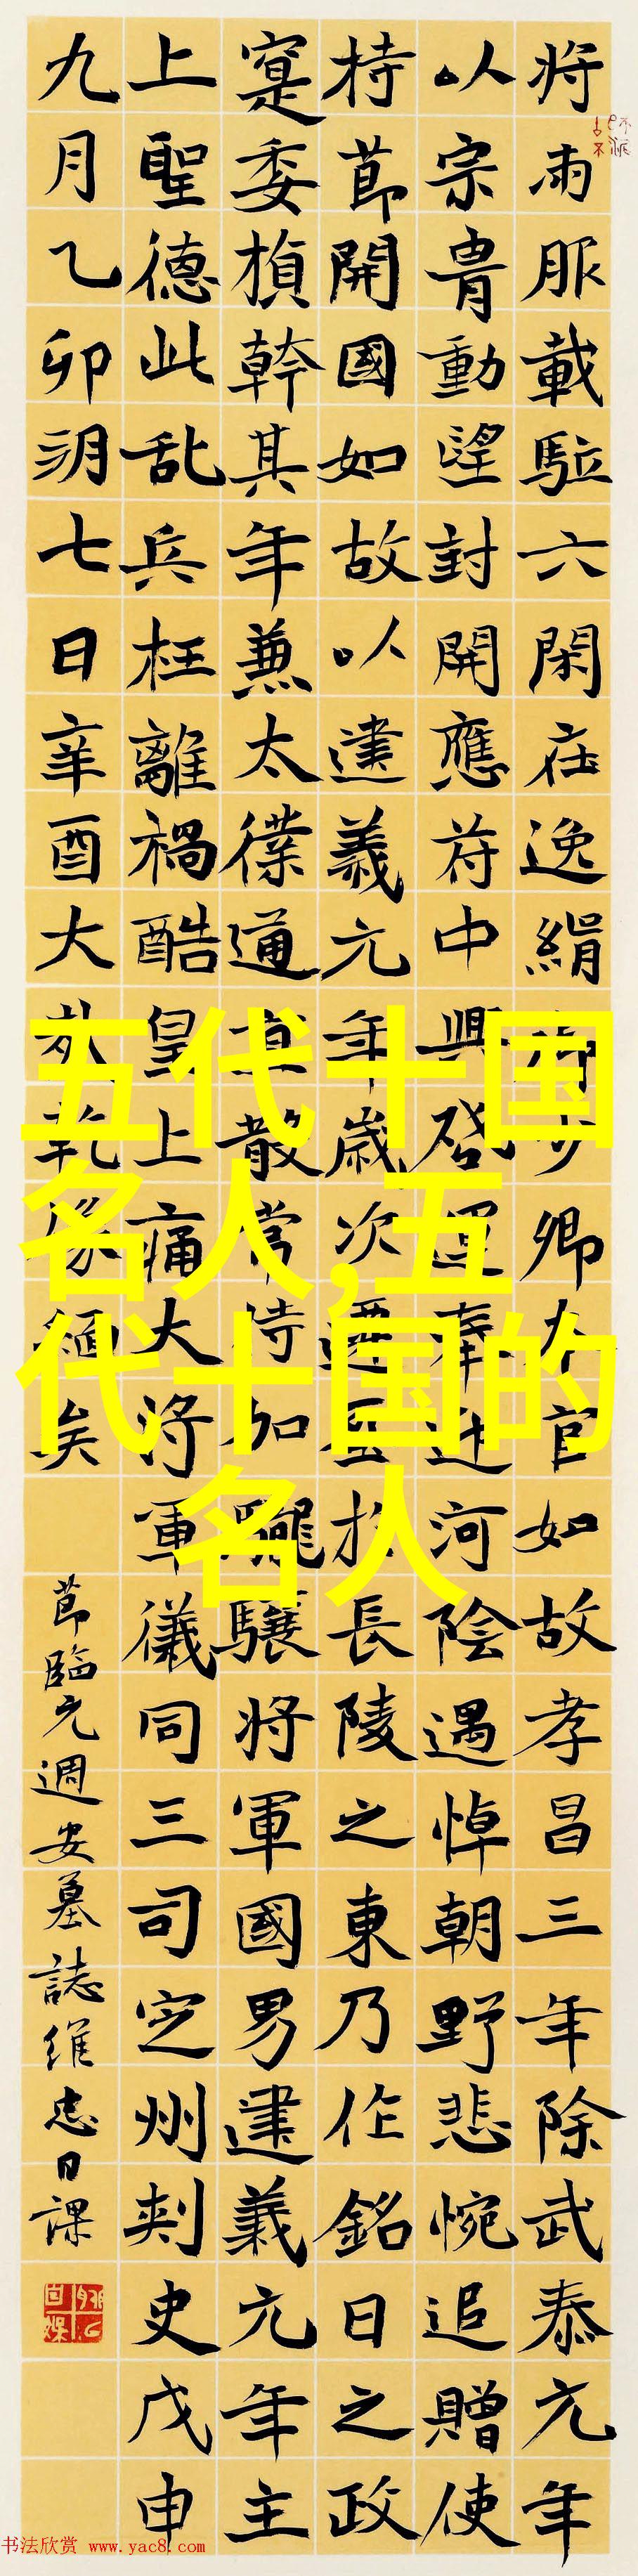 将兩服載駈六閑在逸絹少卿官如故孝昌三年除武泰元年
以宗胄動望封開應苻中興啓運奉迓河陰遇悼朝野悲惋追贈使
持節開國如故以建義元年歲次遷於長陵之東乃作銘曰之政
寔委楨幹其年兼太僕通直散常侍加驤将軍國男建義元年主
上聖德此乱兵枉離禍酷皇上痛大将軍儀同三司定州刾史戊申
九月乙卯朔七日辛酉大哉乾像緬矣
節臨元週安墓誌維忠日課
五代十国
名人,五
代十国的
名人
书法欣赏 www.yac8.com